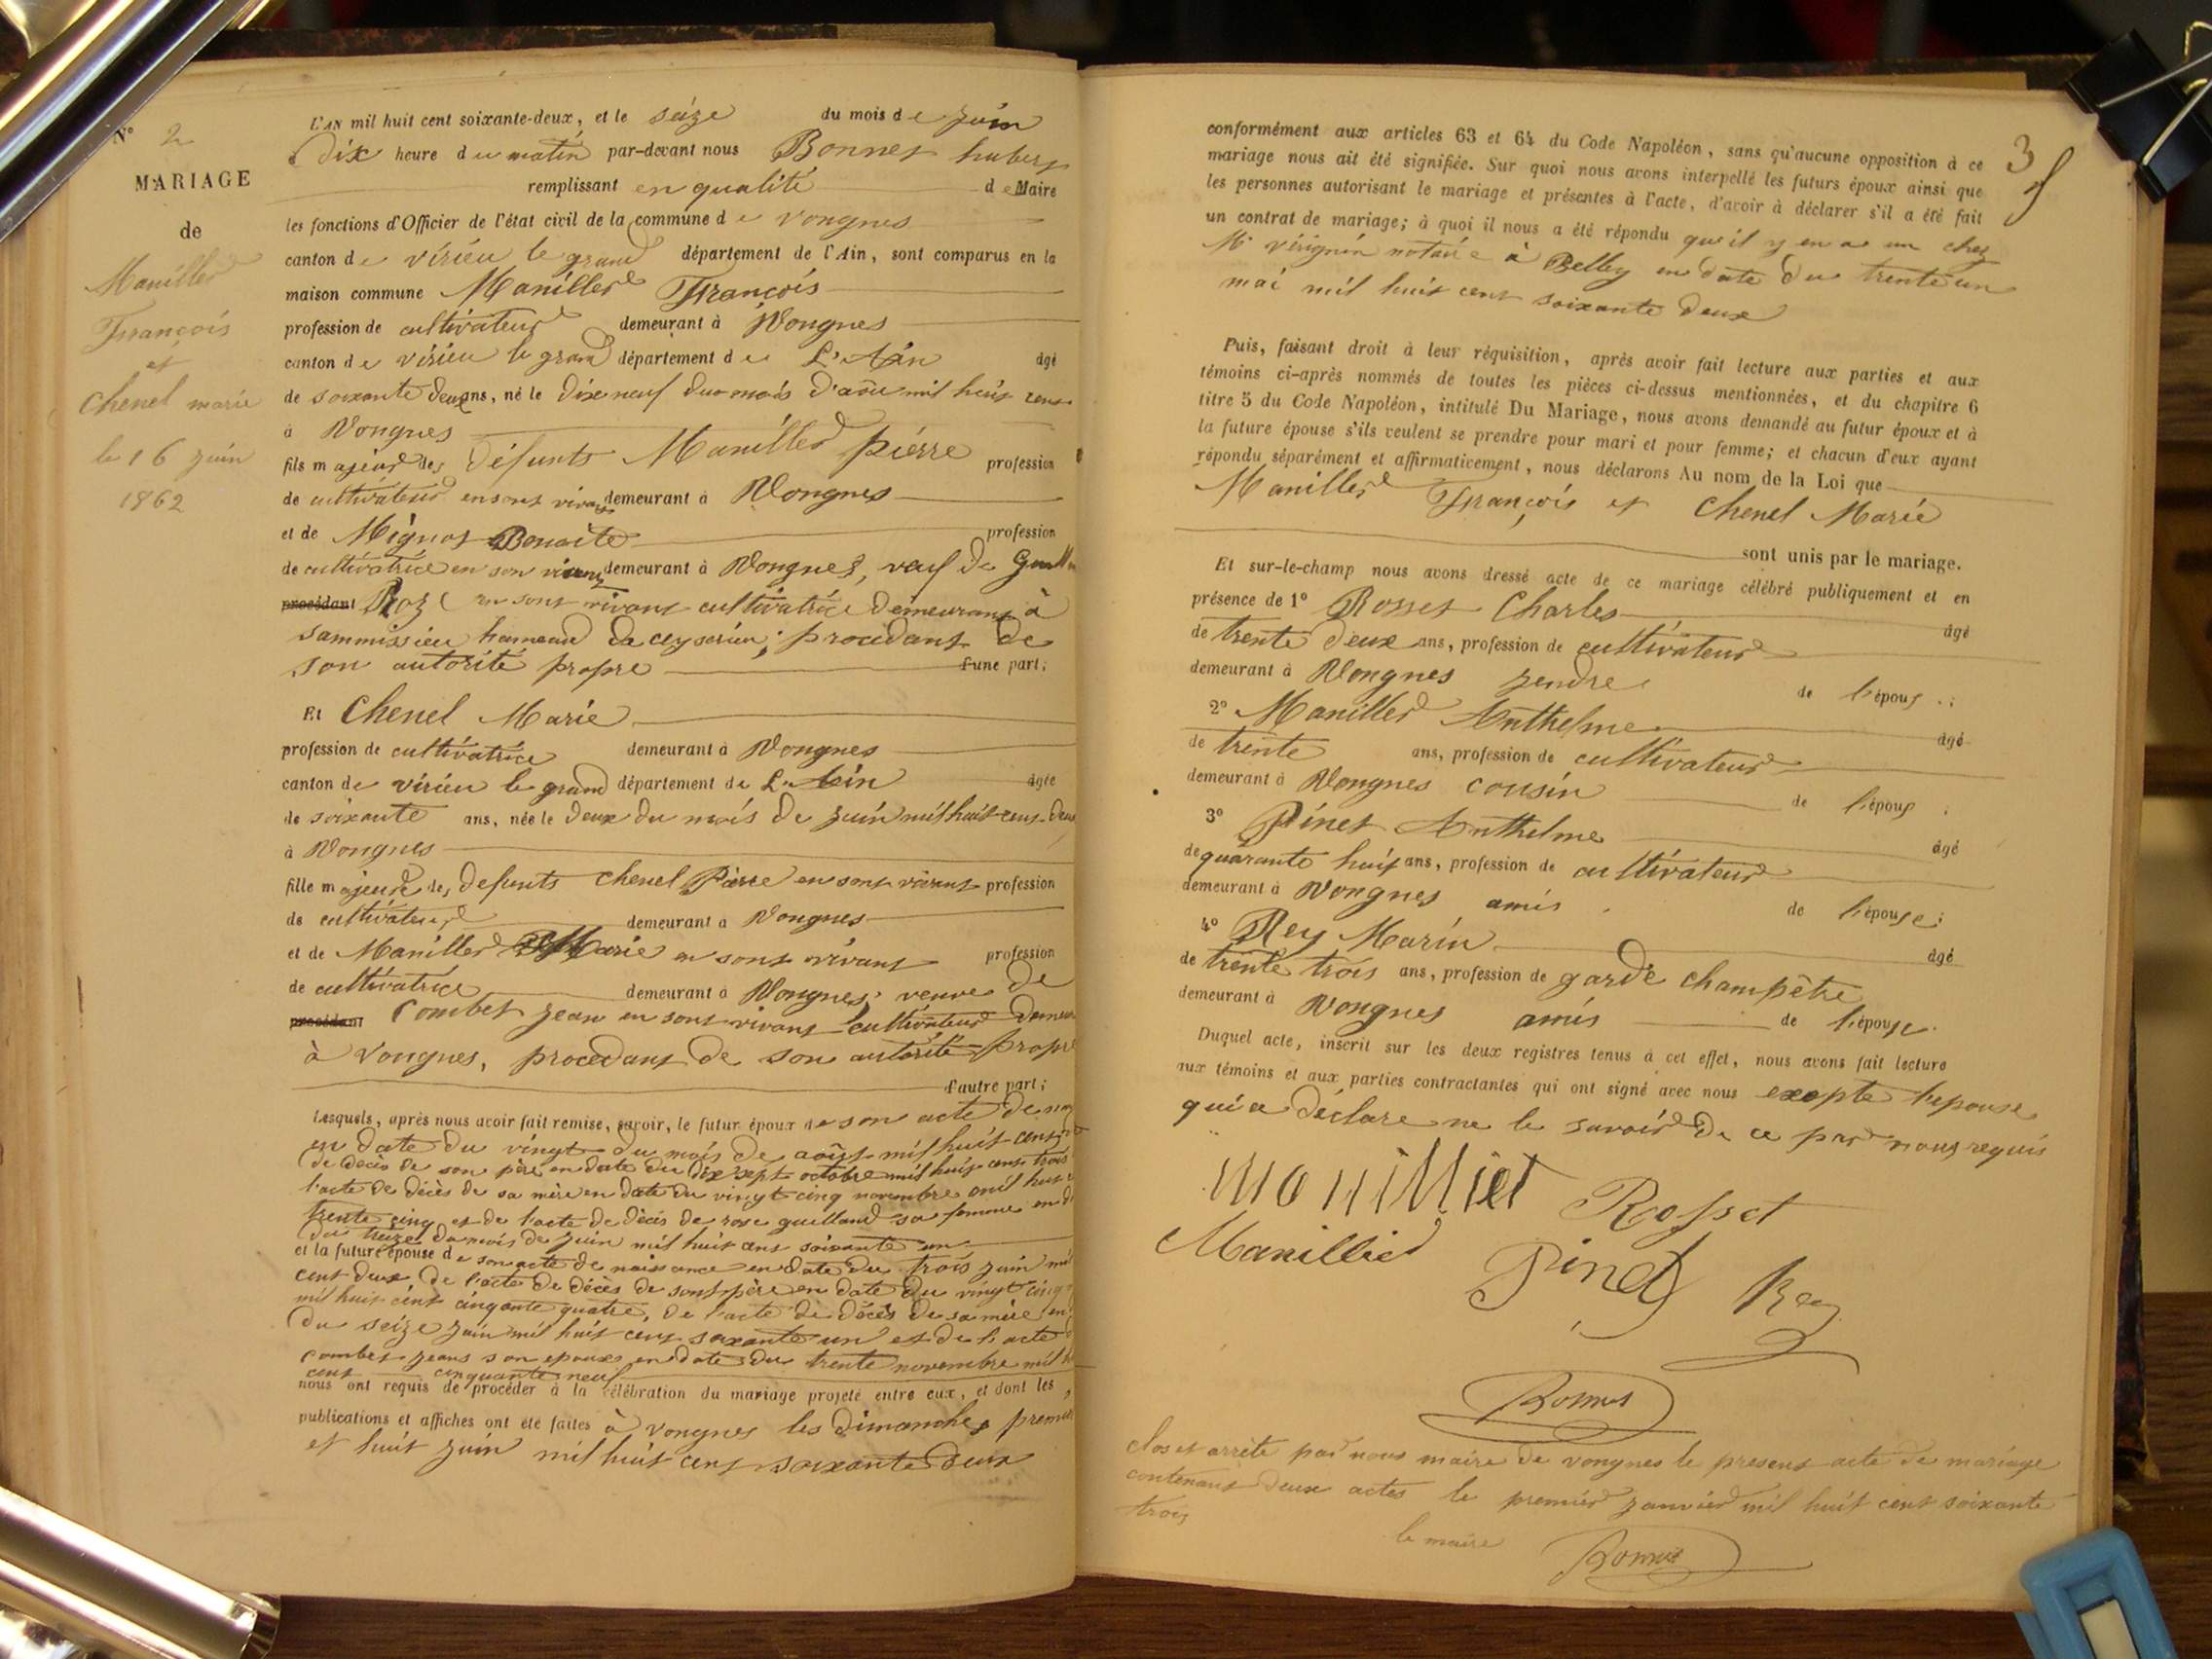 N° 2
MARIAGE
de
Manillier
François
et
Chenel marie
le 16 juin
1862
L'AN mil huit cent soixante-deux, et le seize du mois de juin
à Dix heure du matin par-devant nous Bonnet hubert
remplissant en qualité de Maire
les fonctions d'Officier de l'état civil de la commune de vongnes
canton de virieu le grand département de l'Ain, sont comparus en la
maison commune Manillier François
profession de cultivateur demeurant à Vongnes
canton de virieu le grand département de L'Ain âgé
de soixante deux ans, né le dixe neuf du mois d'aôu mil huit cent
à Vongnes
fils majeur des défunts Manillier pierre profession
de cultivateur en sont vivant demeurant à Vongnes
et de Mignot Benoite profession
de cultivatrice en son vivant demeurant à Vongnes, veuf de
procédant Roze en sont vivant cultivatrice demeurant à
sammissieu hameau de ceyserieu; procédant de
son autorité propre d'une part;
Et Chenel Marie
profession de cultivatrice demeurant à Vongnes
canton de virieu le grand département de L'Ain âgée
de soixante ans, née le Deux du mois de juin mil huit cent deux
à Vongnes
fille majeure des defunts Chenel Pierre en sont vivant profession
de cultivateur demeurant à Vongnes
et de Manillier Marie en sont vivant profession
de cultivatrice demeurant à Vongnes; veuve de
procédant Combet jean en sont vivant cultivateur
à Vongnes, procedant de son autorité propre
d'autre part;
Lesquels, après nous avoir fait remise, savoir, le futur époux de son acte de
en date du vingt du mois de aôut mil huit cent
de décès de son père en date du dix sept octobre mil huit cent trois
l'acte de décès de sa mère en date du vingt cinq novembre mil huit
trente cinq et de l'acte de décès de rose guilland sa femme en
du treize du mois de juin mil huit cent soixante un
et la future épouse de son acte de naissance en date du trois juin mil
cent deux, de l'acte de décès de sont père en date du vingt cinq
mil huit cent cinqante quatre, de l'acte de décès de sa mère en
du seize juin mil huit cent soixante un et de l'acte
combet jeans son epoux en date du trente novembre mil
cent cinquante neuf
nous ont requis de procéder à la célébration du mariage projeté entre eux, et dont les
publications et affiches ont été faites à vongnes les Dimanches premier
et huit juin mil huit cent soixante deux
3
conformément aux articles 63 et 64 du Code Napoléon, sans qu'aucune opposition à ce
mariage nous ait été signifiée. Sur quoi nous avons interpellé les futurs époux ainsi que
les personnes autorisant le mariage et présentes à l'acte, d'avoir à déclarer s'il a été fait
un contrat de mariage; à quoi il nous a été répondu que il y en a un chez
Mr vérignin notaire à Belley en date du trente un
mai mil huit cent soixante deux
Puis, faisant droit à leur réquisition, après avoir fait lecture aux parties et aux
témoins ci-après nommés de toutes les pièces ci-dessus mentionnées, et du chapitre 6
titre 5 du Code Napoléon, intitulé Du Mariage, nous avons demandé au futur époux et à
la future épouse s'ils veulent se prendre pour mari et pour femme; et chacun d'eux ayant
répondu séparément et affirmativement, nous déclarons Au nom de la Loi que
Manillier François et Chenel Marie
sont unis par le mariage.
Et sur-le-champ nous avons dressé acte de ce mariage célébré publiquement et en
présence de 1° Rosset Charles âgé
de trente deux ans, profession de cultivateur
demeurant à Vongnes jendre de l'époux;
2° Manillier Anthelme âgé
de trente ans, profession de cultivateur
demeurant à Vongnes cousin de l'époux
3° Pinet Anthelme âgé
de quarante huit ans, profession de cultivateur
demeurant à Vongnes amis de l'épouse;
4° Rey Marin âgé
de trente trois ans, profession de garde champêtre
demeurant à Vongnes amis de l'épouse.
Duquel acte, inscrit sur les deux registres tenus à cet effet, nous avons fait lecture
aux témoins et aux parties contractantes qui ont signé avec nous exepte l'epouse
qui a déclare ne le savoir de ce par nous requis
Manilliet Rosset
Manillier Pinet Rey
Bonnet
clos et arrête par nous maire de vongnes le present acte de mariage
contenant deux actes le premier janvier mil huit cent soixante
trois
le maire Bonnet